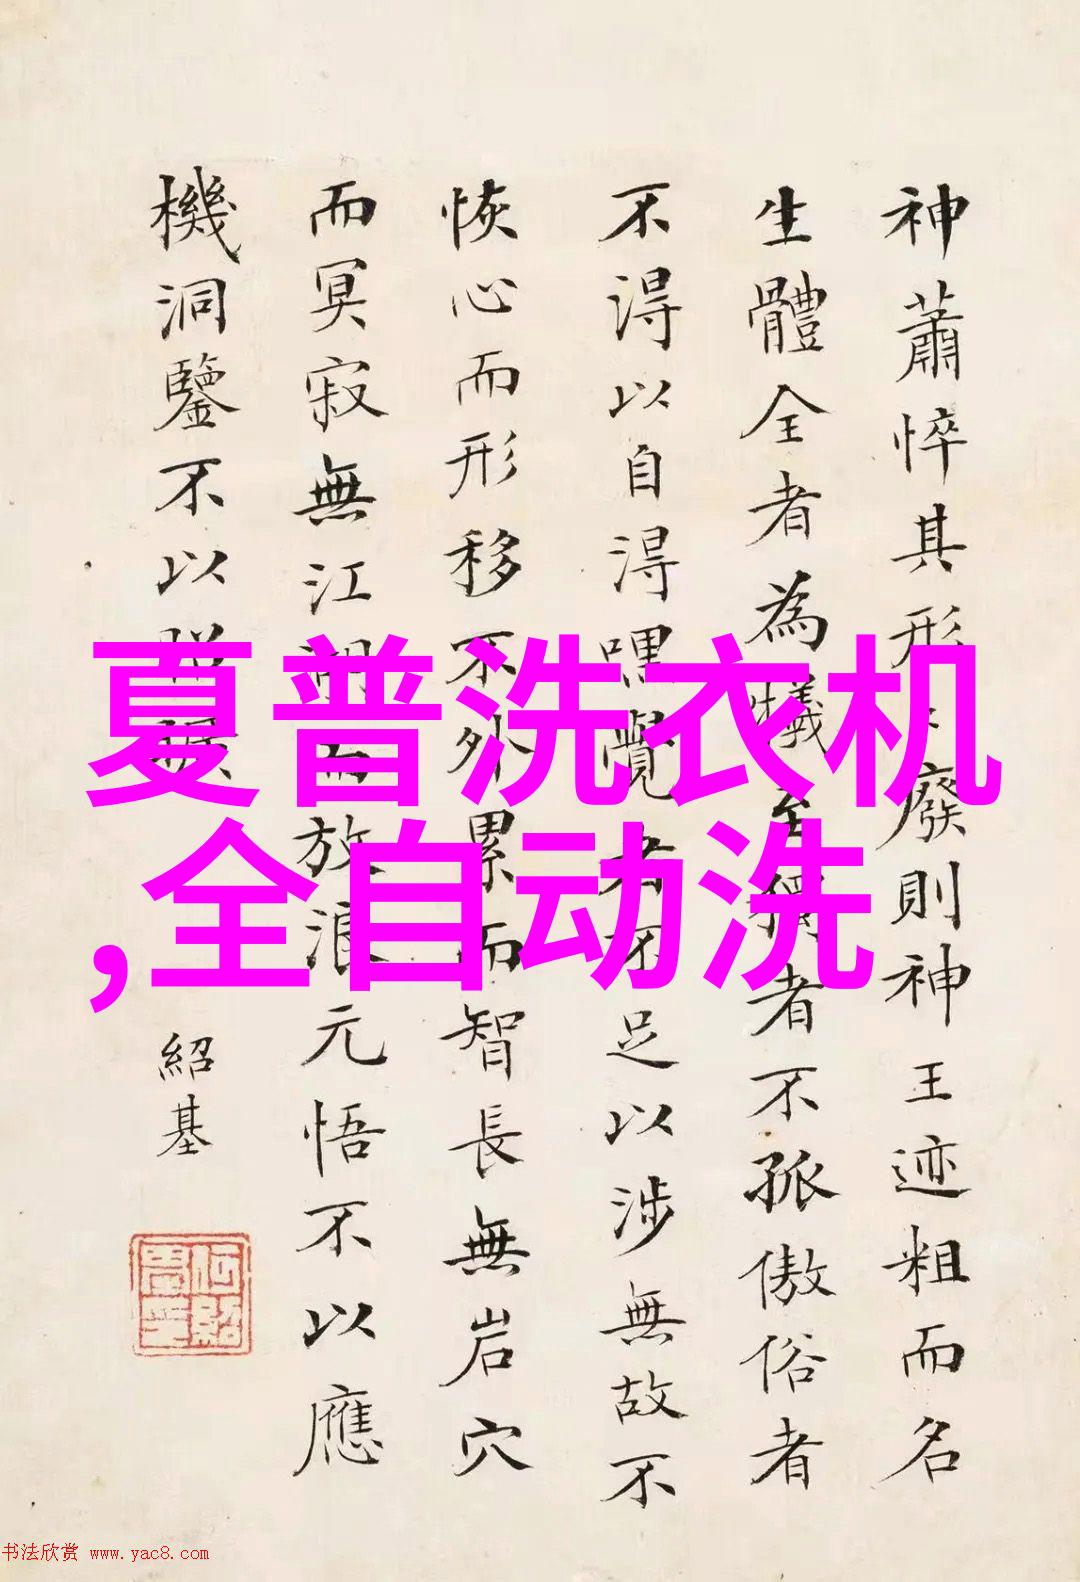 夏普洗衣机
,全自动洗
神蕭悴其形廢則神王迹粗而名
生體全者為犧至獨者不孤傲俗者
不得以自得嘿覺者不足以涉無故不
恢心而形移不外累而智長無岩穴
而冥寂無江湖而放浪元悟不以應
機洞鑒不以
紹基
书法欣赏 www.yac8.com